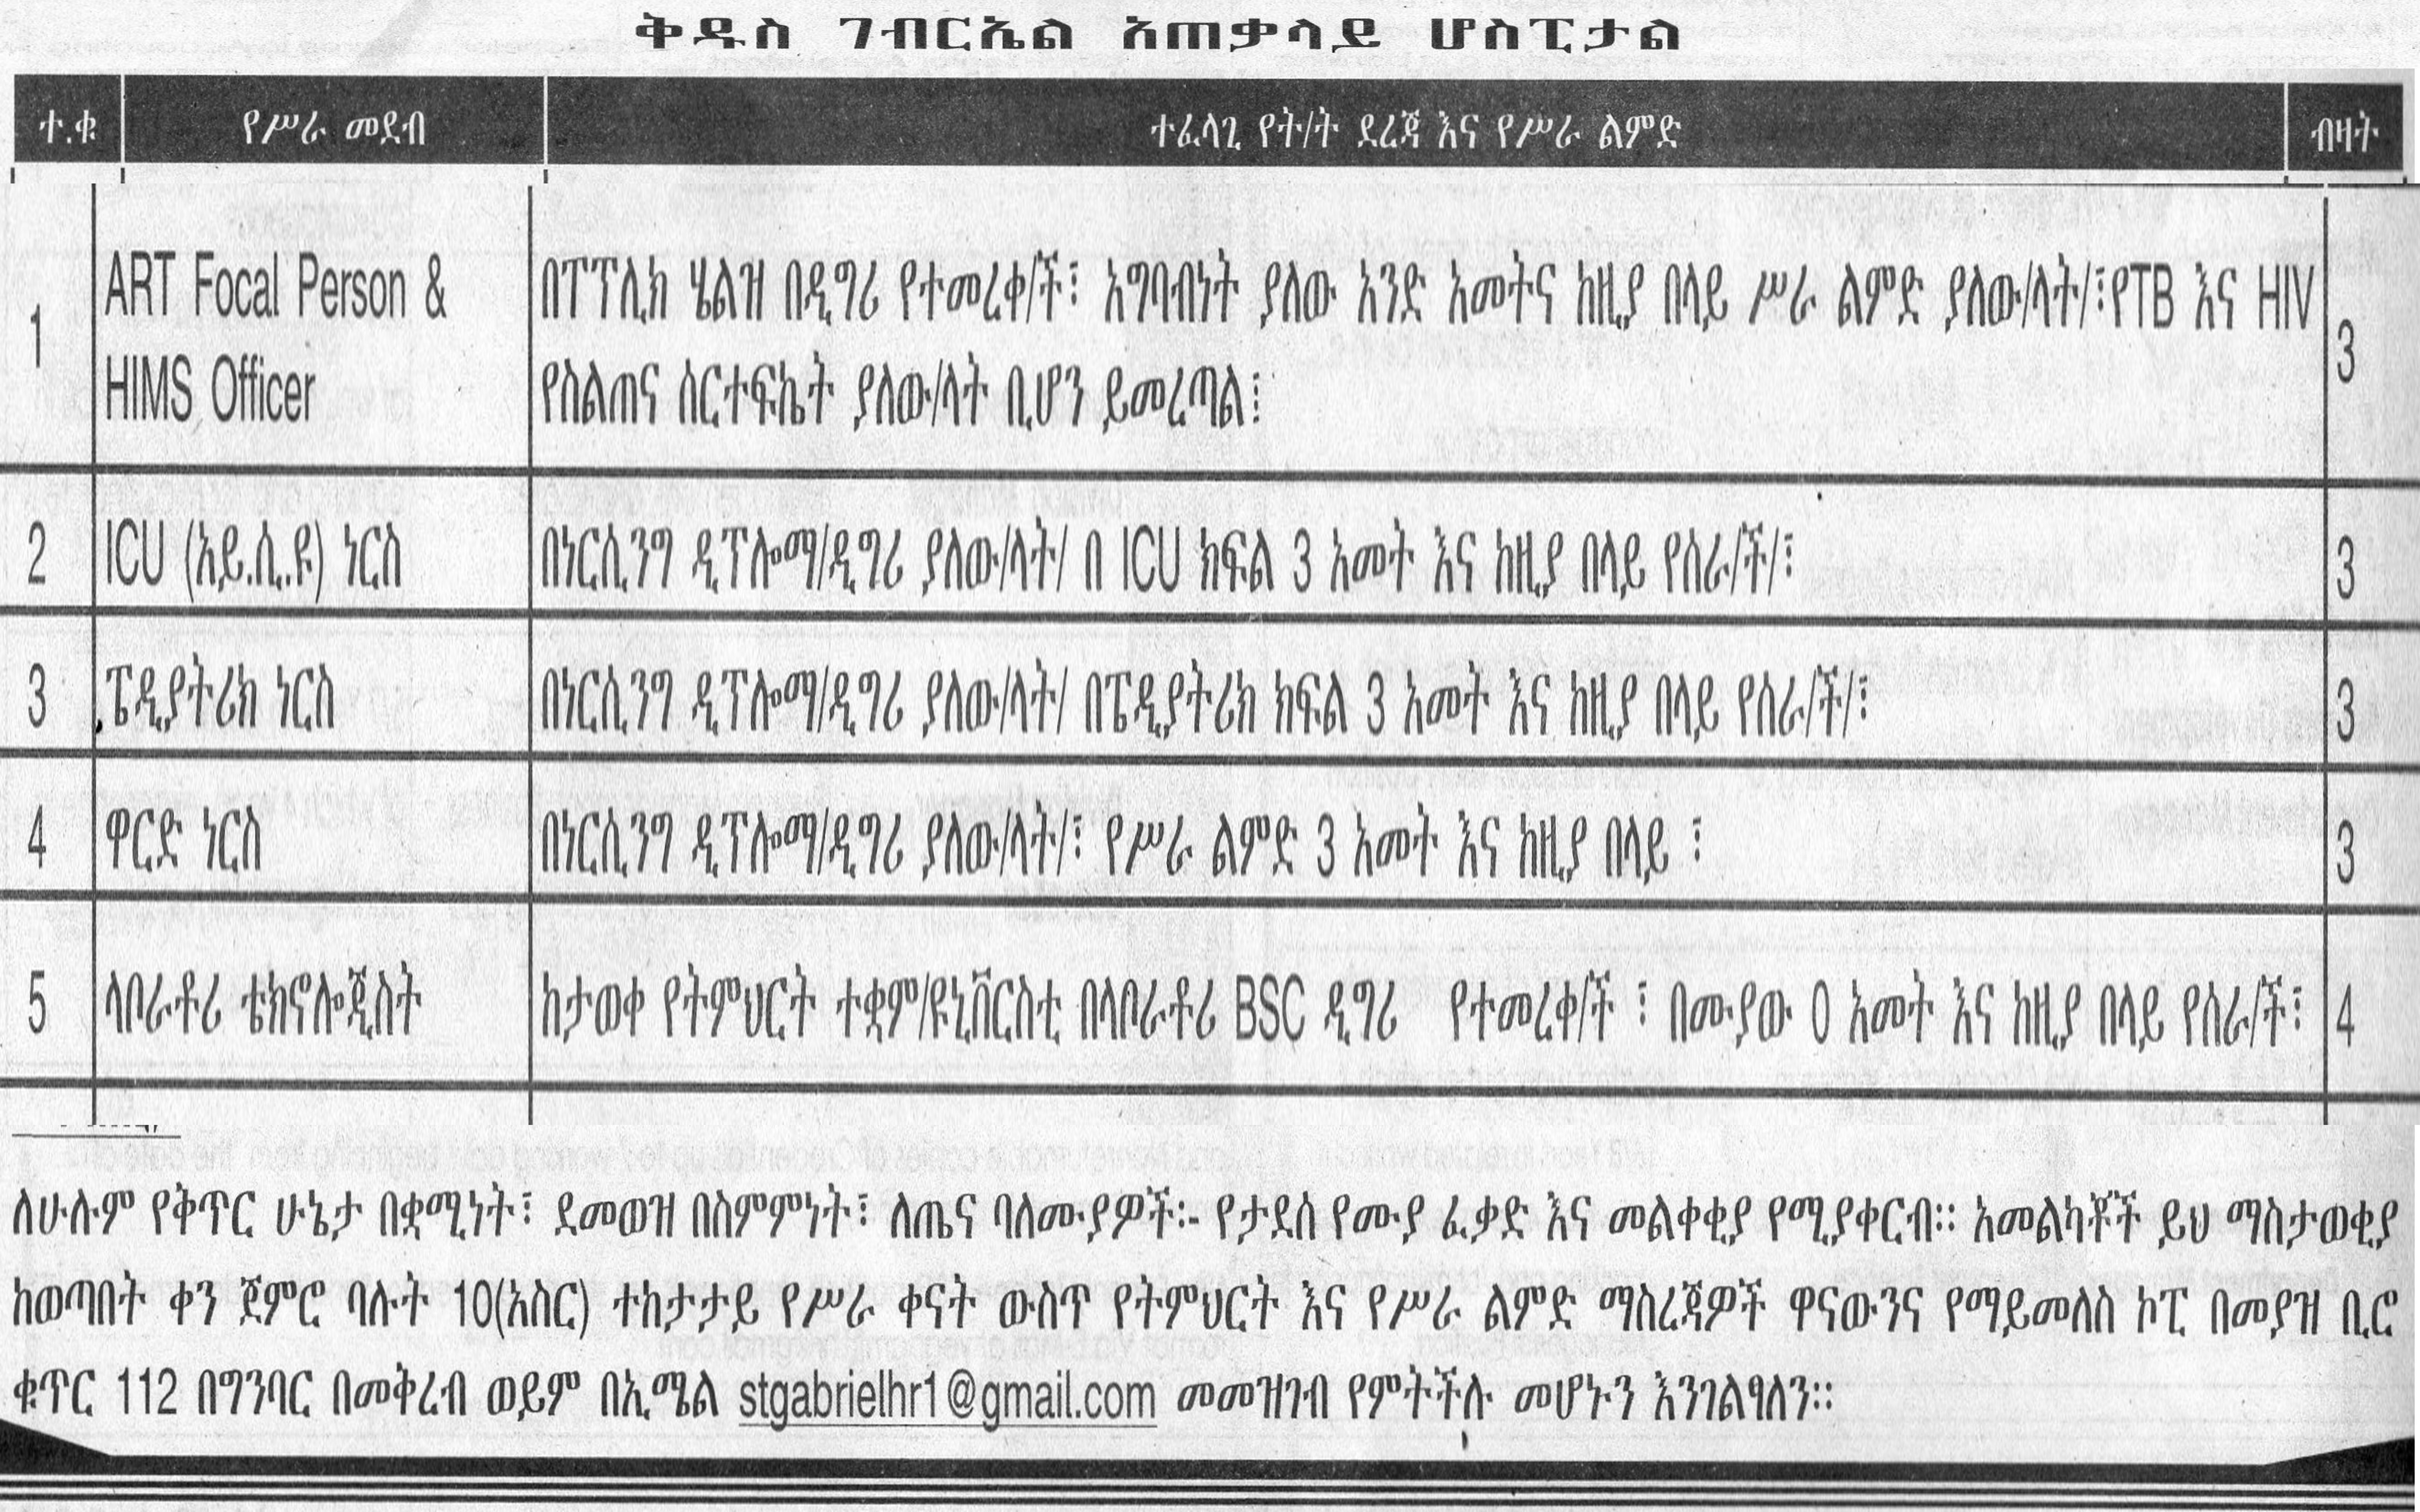 ቅዱስ ገብርኤል አጠቃላይ ሆስፒታል
ተ.ቁ የሥራ መደብ ተፈላጊ የት/ት ደረጃ እና የሥራ ልምድ ብዛት
1 ART Focal Person & HIMS Officer በፐፕሊክ ሄልዝ በዲግሪ የተመረቀ/ች፤ አግባብነት ያለው አንድ አመትና ከዚያ በላይ ሥራ ልምድ ያለው/ላት/፤የTB እና HIV
የስልጠና ሰርተፍኬት ያለው/ላት ቢሆን ይመረጣል፤ 3
2 ICU (አይ.ሲ.ዩ) ነርስ በነርሲንግ ዲፕሎማ/ዲግሪ ያለው/ላት/ በ ICU ክፍል 3 አመት እና ከዚያ በላይ የሰራ/ች/፤ 3
3 ፔዲያትሪክ ነርስ በነርሲንግ ዲፕሎማ/ዲግሪ ያለው/ላት/ በፔዲያትሪክ ክፍል 3 አመት እና ከዚያ በላይ የሰራ/ች/፤ 3
4 ዋርድ ነርስ በነርሲንግ ዲፕሎማ/ዲግሪ ያለው/ላት/፤ የሥራ ልምድ 3 አመት እና ከዚያ በላይ ፤ 3
5 ላቦራቶሪ ቴክኖሎጂስት ከታወቀ የትምህርት ተቋም/ዩኒቨርስቲ በላቦራቶሪ BSC ዲግሪ የተመረቀ/ች ፤ በሙያው 0 አመት እና ከዚያ በላይ የሰራ/ች፤ 4
ለሁሉም የቅጥር ሁኔታ በቋሚነት፤ ደመወዝ በስምምነት፤ ለጤና ባለሙያዎች፡- የታደሰ የሙያ ፈቃድ እና መልቀቂያ የሚያቀርብ። አመልካቾች ይህ ማስታወቂያ
ከወጣበት ቀን ጀምሮ ባሉት 10(አስር) ተከታታይ የሥራ ቀናት ውስጥ የትምህርት እና የሥራ ልምድ ማስረጃዎች ዋናውንና የማይመለስ ኮፒ በመያዝ ቢሮ
ቁጥር 112 በግንባር በመቅረብ ወይም በኢሜል stgabrielhr1@gmail.com መመዝገብ የምትችሉ መሆኑን እንገልፃለን።